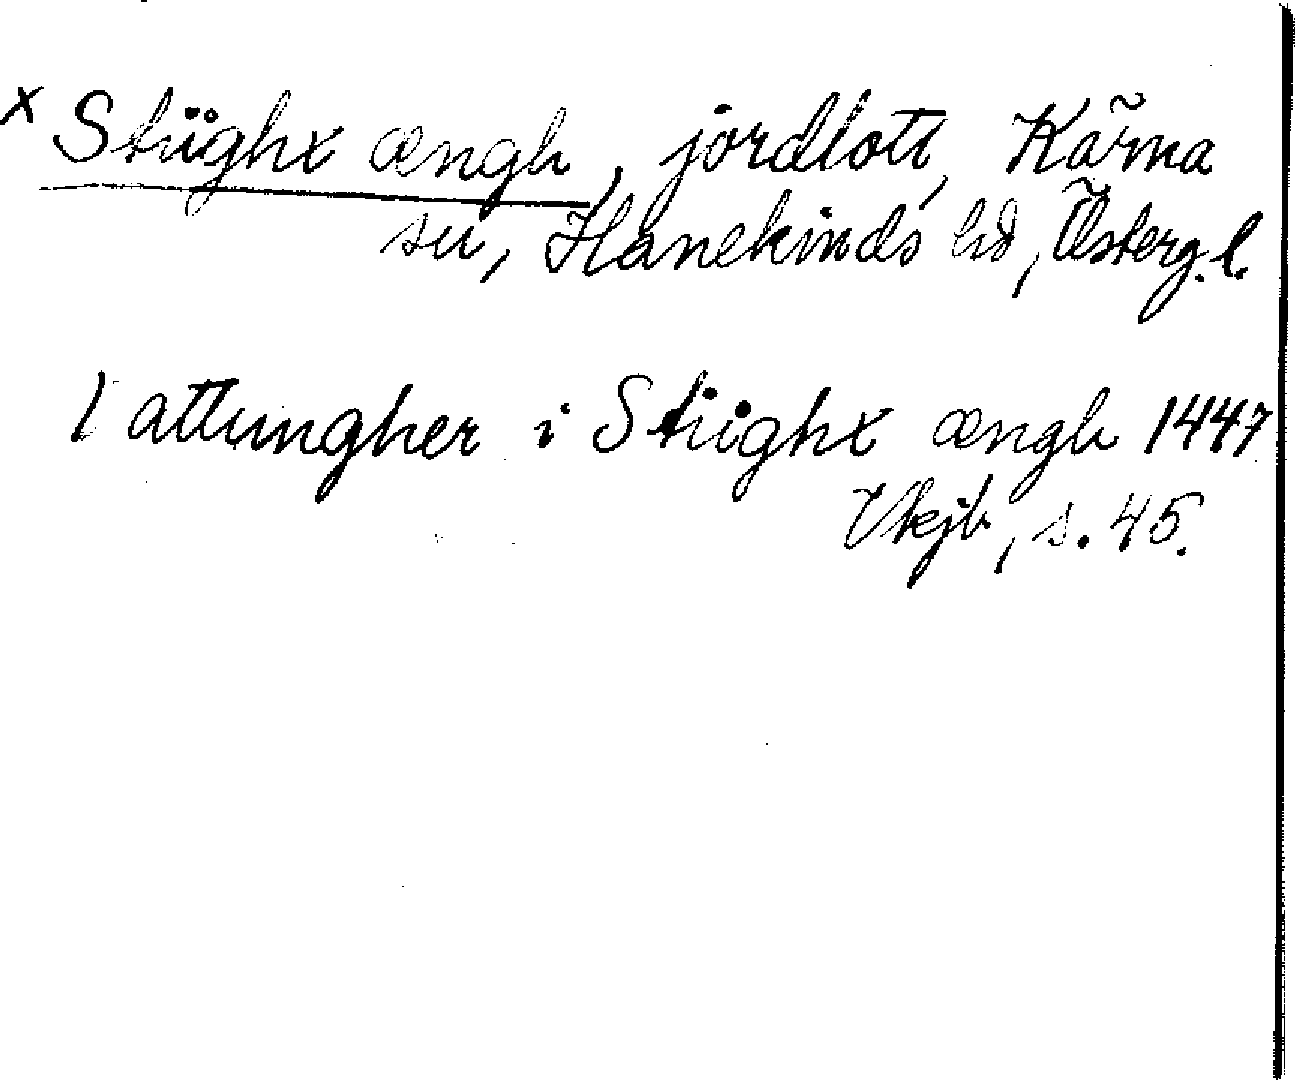 x Stiighx ængh, jordlott, Kärna
sn, Hanekinds hd, Österg. l.
1 attungher i Stiighx ængh 1447
Vkjb, s. 45.